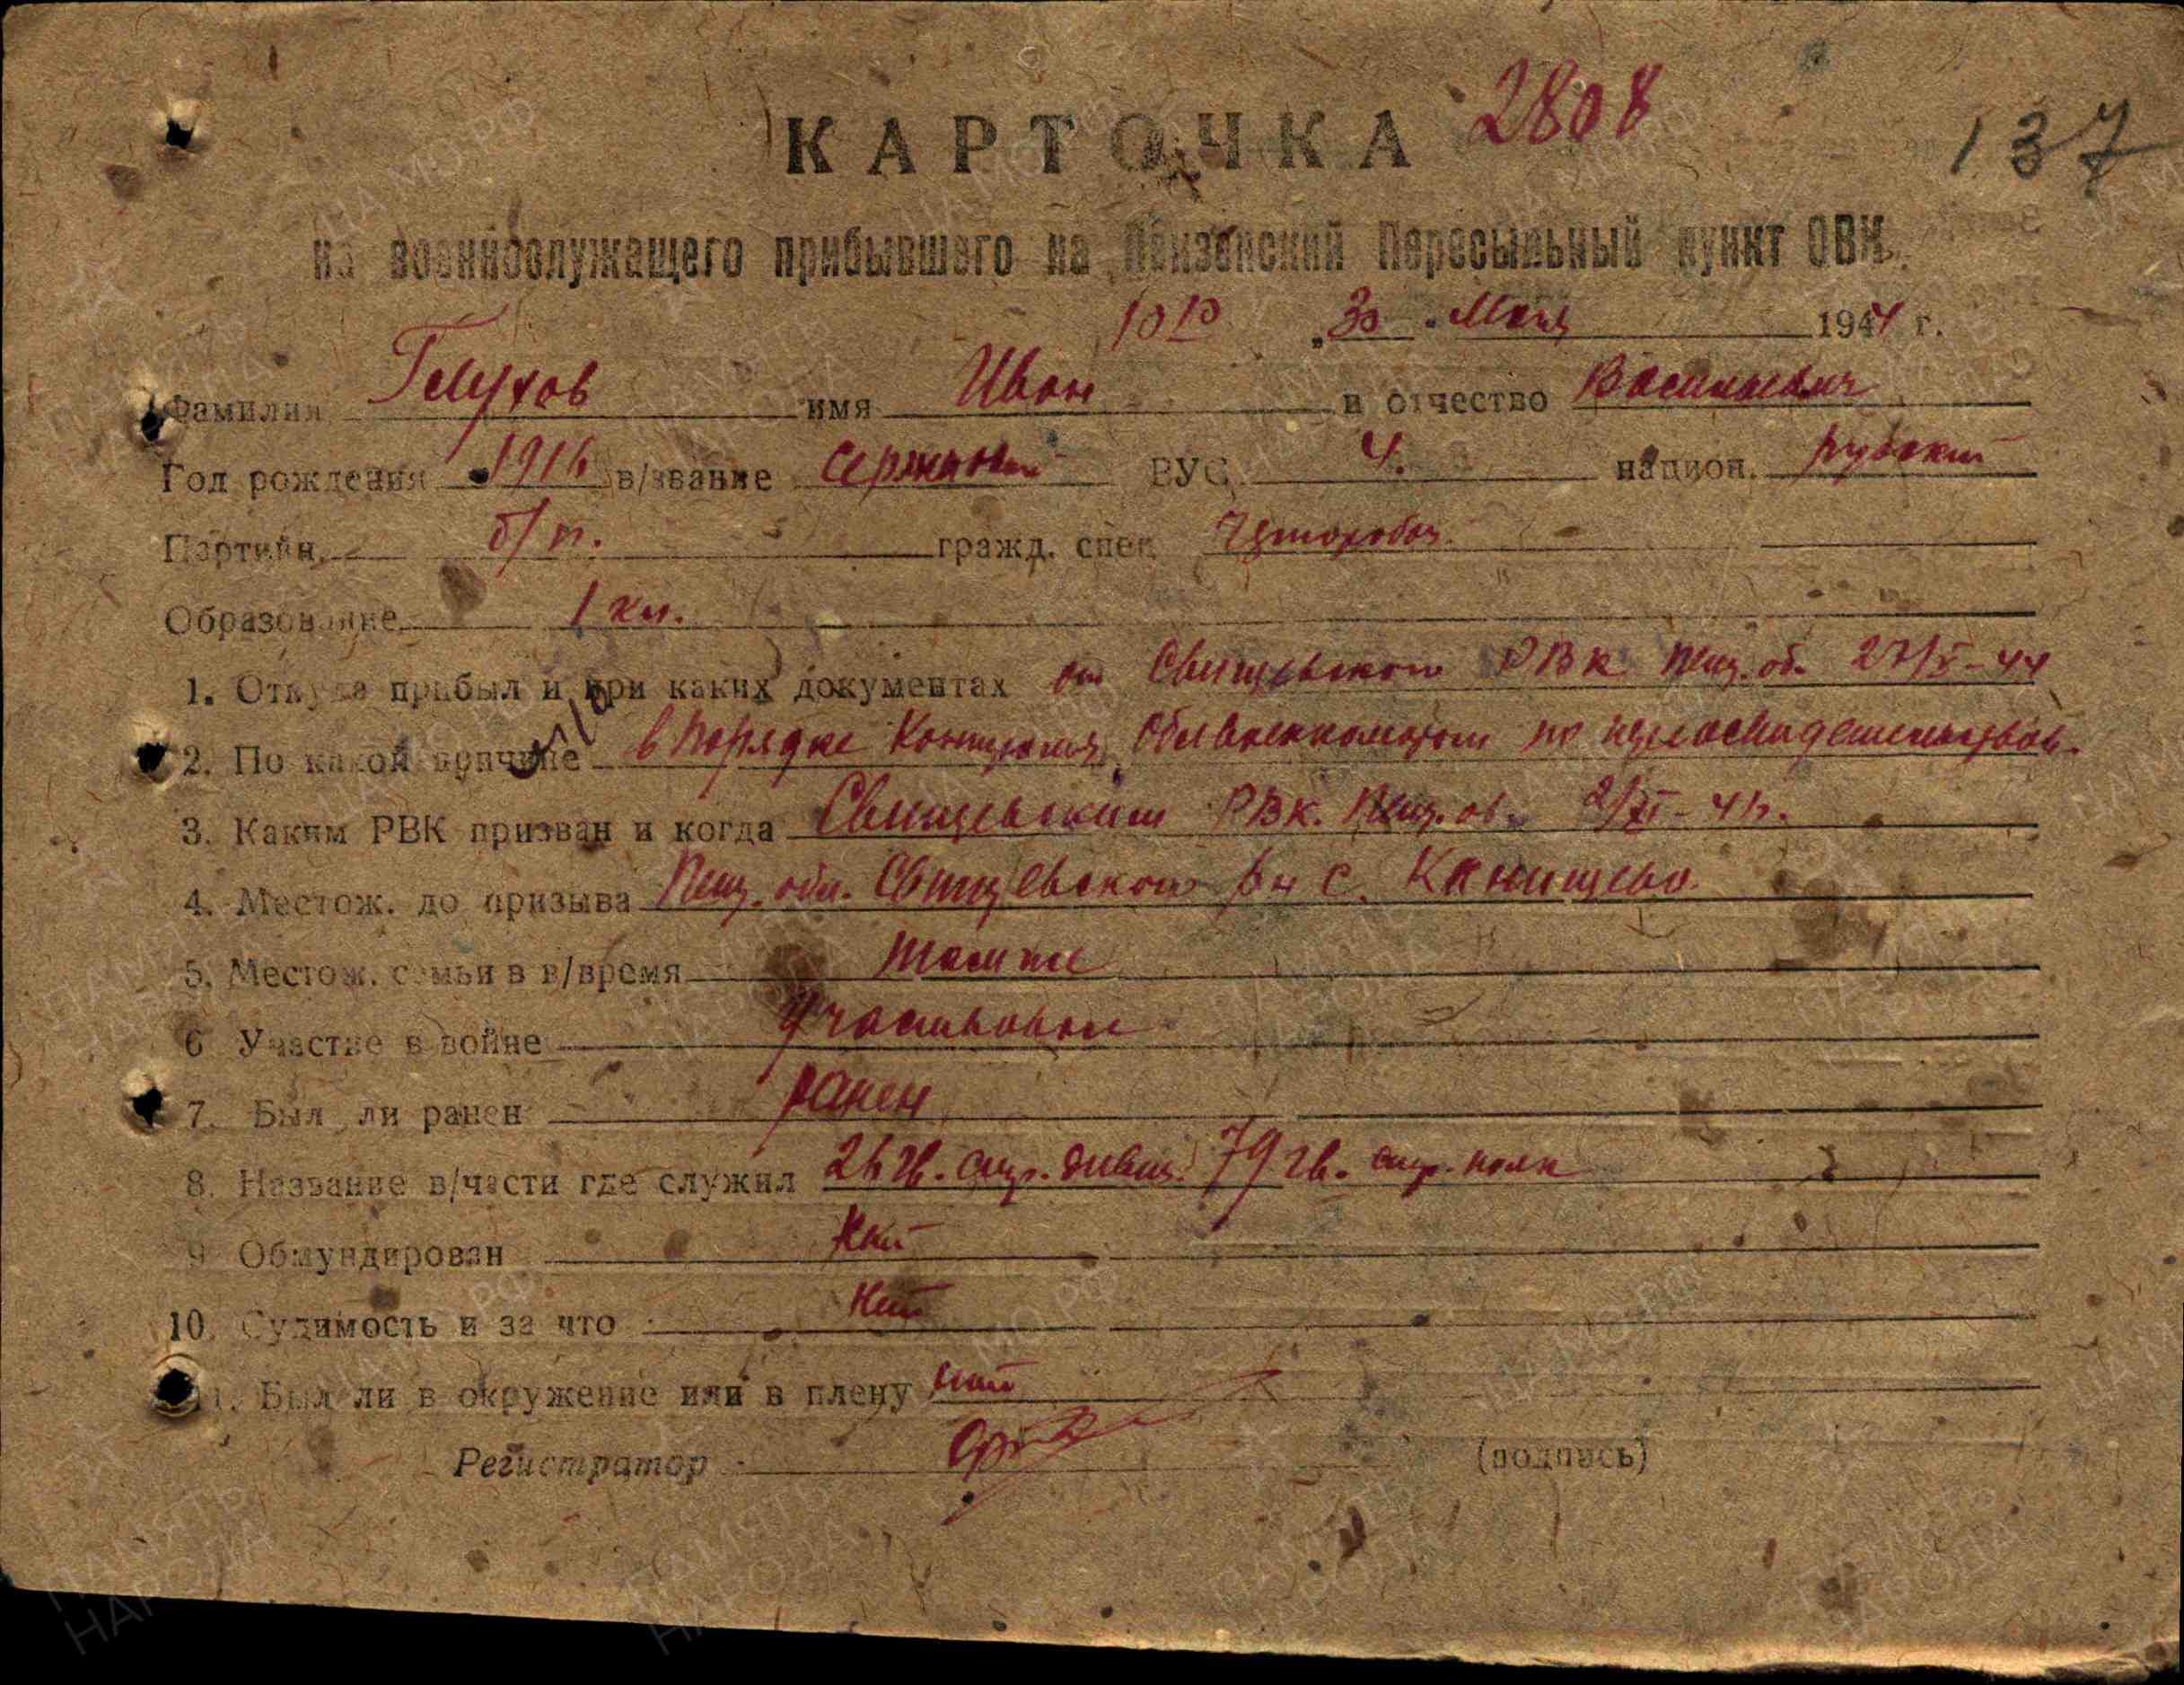 КАРТОЧКА 2808
137
на военнослужащего прибывшего на Пензенский Пересыльный пункт ОВК.
10 10 „30" Мая 1944 г.
Фамилия Глухов имя Иван и отчество Васильевич
Год рождения 1916 в/звание сержант ВУС 4. национ. русский
Партийн. б/п. гражд. спец. чернороб.
Образование 1 кл.
1. Откуда прибыл и при каких документах от Свищевского РВК Пенз. об. 27/V-44
2. По какой причине в порядке Облвоенкоматом по
3. Каким РВК призван и когда Свищевским РВК. Пенз. об. 2/XI-41г.
4. Местож. до призыва Пенз. обл. Свищевского р-н с. Канищево.
5. Местож. семьи в в/время там же
6 Участие в войне Участвовал
7. Был ли ранен ранен
8. Название в/части где служил 26 гв. стр. дивиз. 79 гв. стр. полк
9 Обмундирован нет
10. Судимость и за что нет
11. Был ли в окружение или в плену нет
Регистратор (подпись)
ПАМЯТЬ НАРОДА
ЦА МО РФ